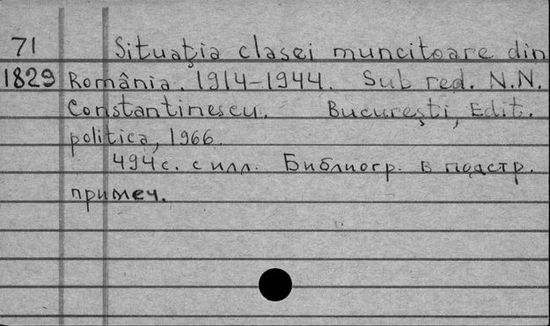 71 Situaţia clasei muncitoare din
1829 România. 1914-1944. Sub red. N.N.
Constantinescu. Bucureşti, Edit.
politica, 1966.
494с. с илл. Библиогр. в подстр.
примеч.